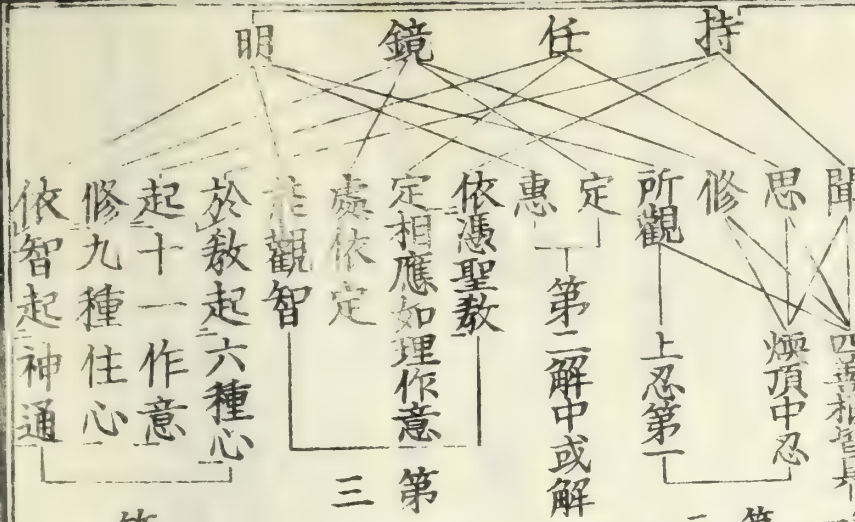 持
任
鏡
明
聞
思
修
所觀
定
惠
依憑聖教
定相應如理作意
處依定
觀智
於教起六種心
起十一作意
修九種住心
依智起神通
四善根皆具
煗頂中忍
上忍第一
第二解中或解
第三
第
第二